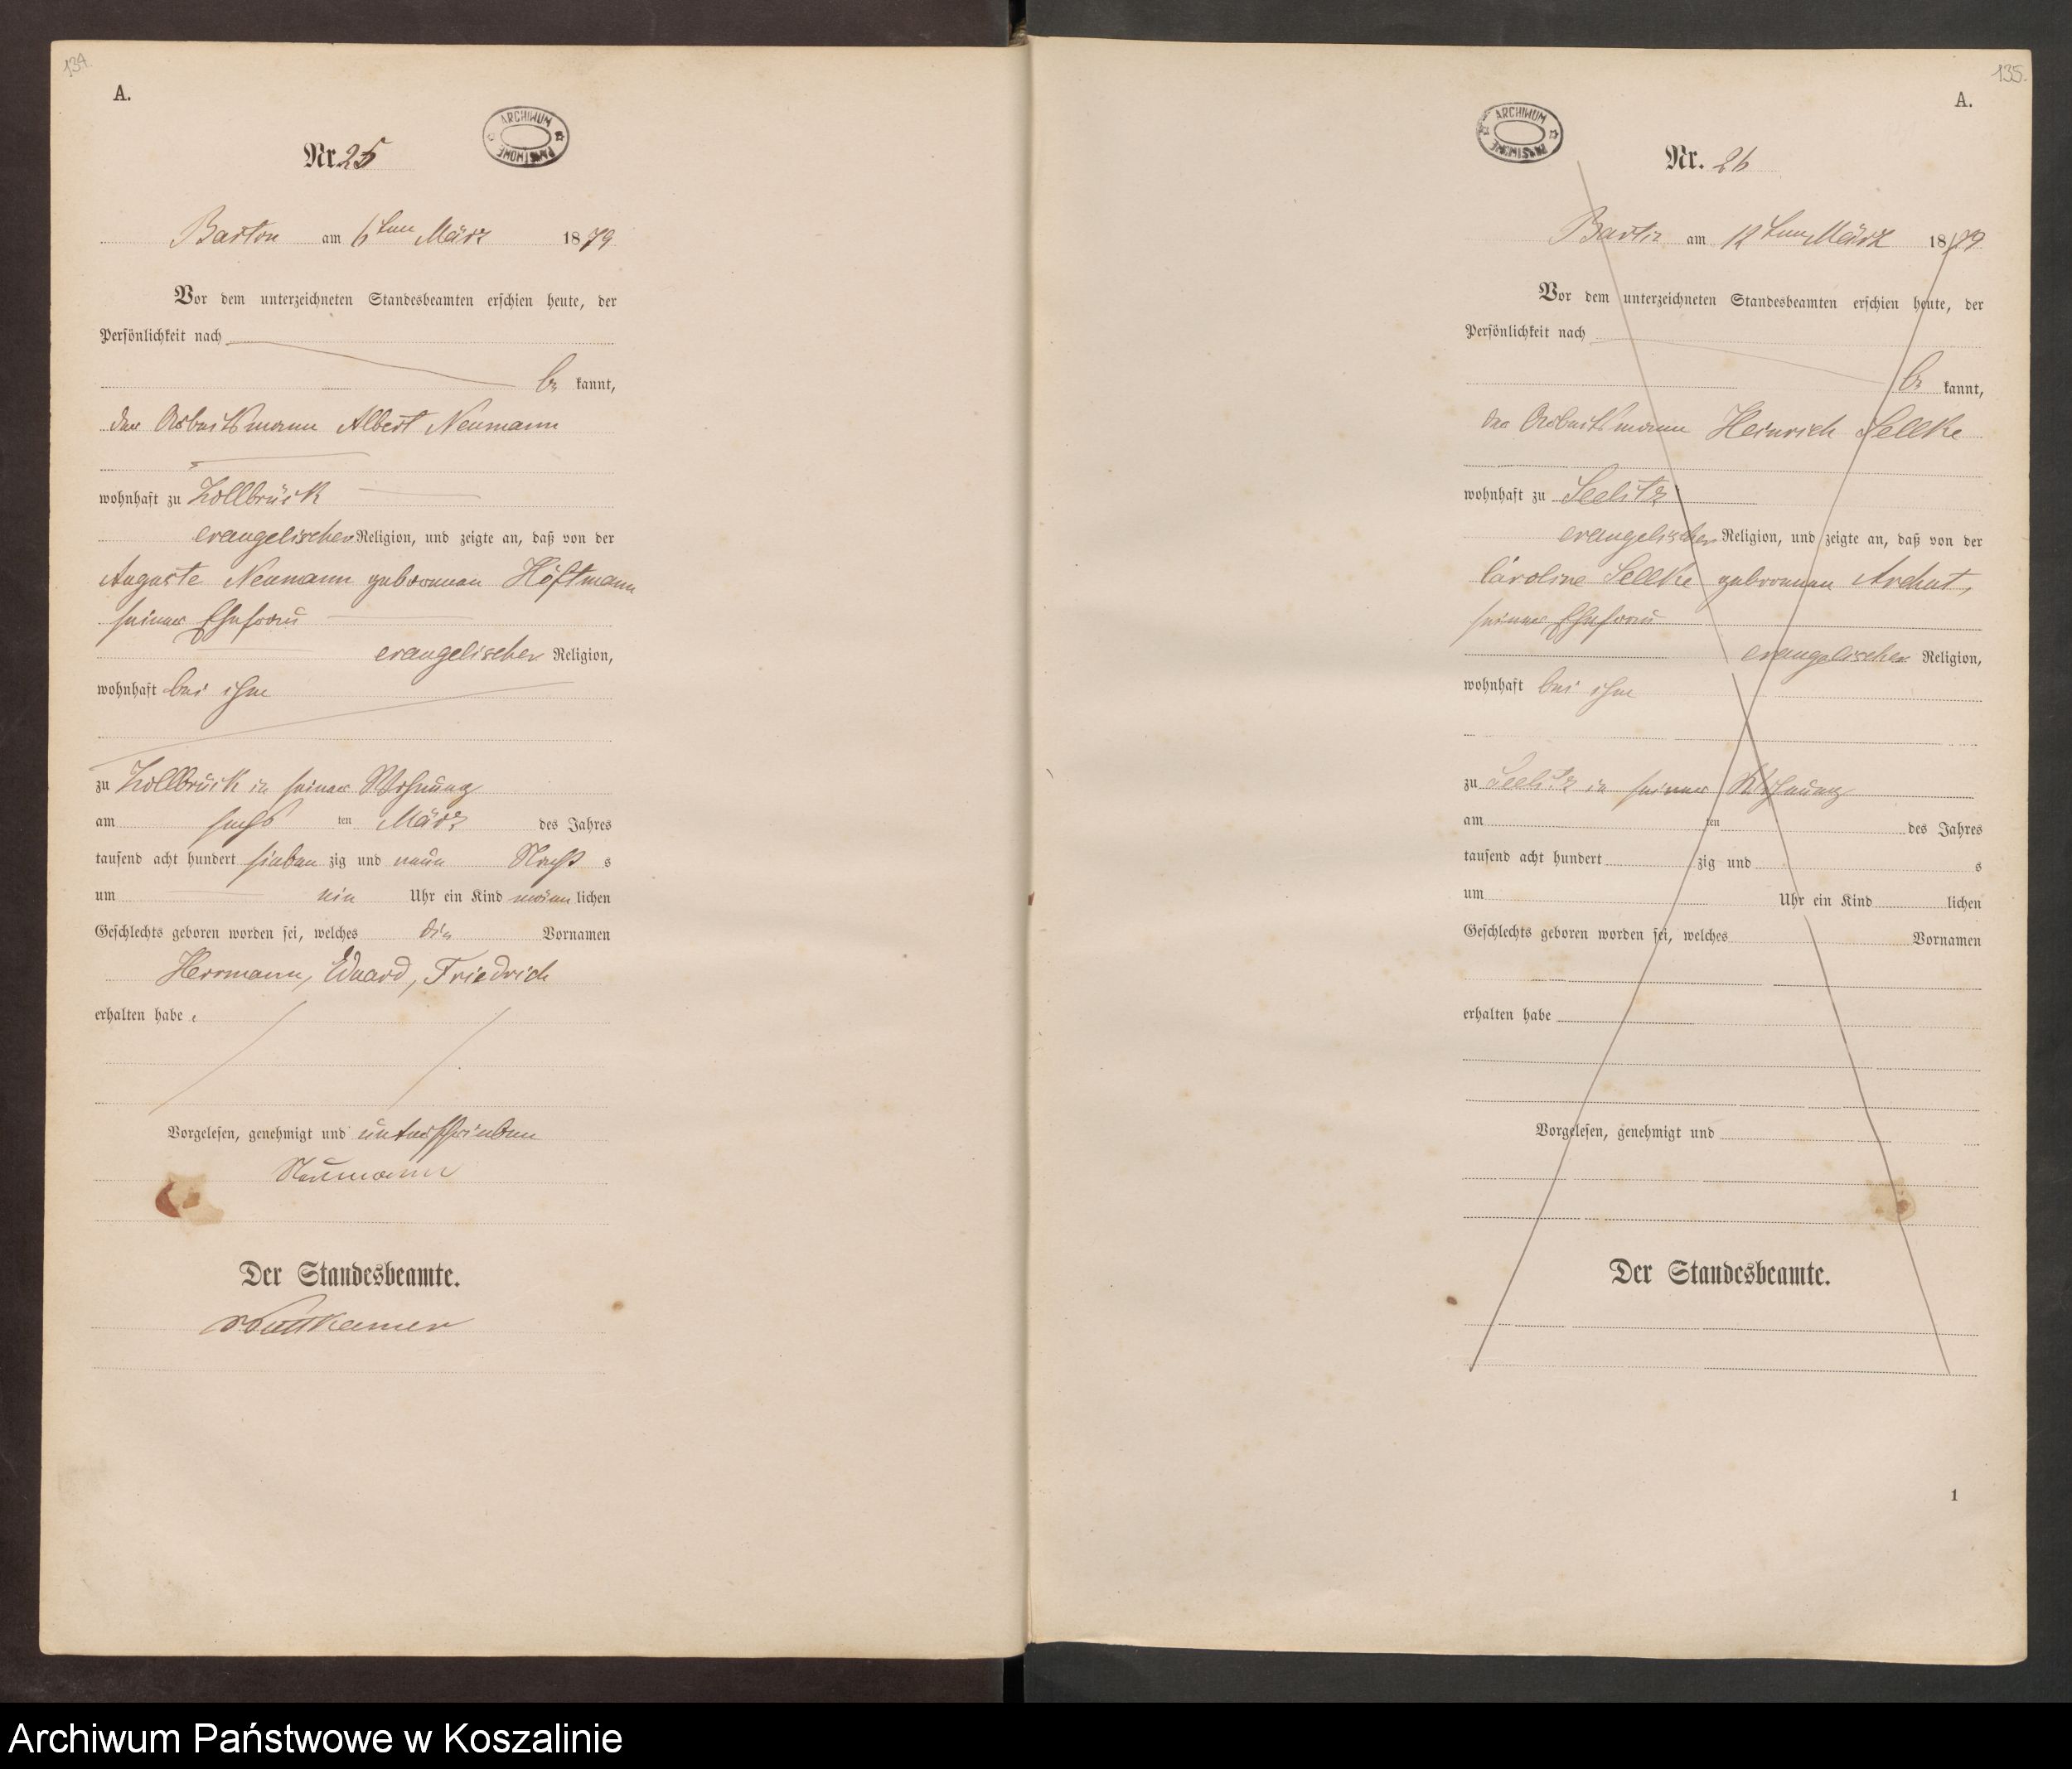 134.
A.
ARCHIWUM PAŃSTWOWE
Nr. 25
Bartin am 6ten März 1879
Vor dem unterzeichneten Standesbeamten erschien heute, der
Persönlichkeit nach
be kannt,
der Arbeitsmann Albert Neumann
wohnhaft zu Zollbrück
evangelischer Religion, und zeigte an, daß von der
Auguste Neumann geborenen Höftmann
seiner Ehefrau
evangelischer Religion,
wohnhaft bei ihm
zu Zollbrück in seiner Wohnung
am sechs ten März des Jahres
tausend acht hundert sieben zig und neun Nacht s
um ein Uhr ein Kind männ lichen
Geschlechts geboren worden sei, welches die Vornamen
Herrmann, Eduard, Friedrich
erhalten habe
Vorgelesen, genehmigt und unterschrieben
Neumann
Der Standesbeamte.
135.
A.
ARCHIWUM PAŃSTWOWE
Nr. 26
Bartin am 12ten März 1879
Vor dem unterzeichneten Standesbeamten erschien heute, der
Persönlichkeit nach
be kannt,
der Arbeitsmann Heinrich Sellke
wohnhaft zu Seelitz
evangelischer Religion, und zeigte an, daß von der
Caroline Sellke geborenen Archut,
seiner Ehefrau
evangelischer Religion,
wohnhaft bei ihm
zu Seelitz in seiner Wohnung
am ten des Jahres
tausend acht hundert zig und s
um Uhr ein Kind lichen
Geschlechts geboren worden sei, welches Vornamen
erhalten habe
Vorgelesen, genehmigt und
Der Standesbeamte.
1
Archiwum Państwowe w Koszalinie